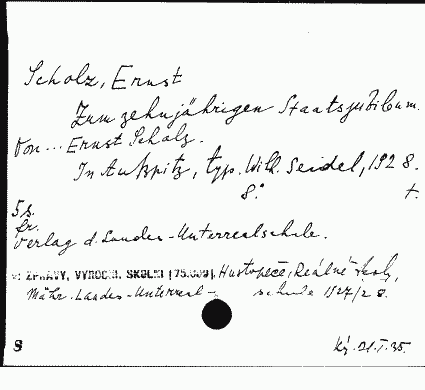 Scholz, Ernst
Zum zehnjährigen Staatsjubileum.
Von ... Ernst Scholz.
In Auspitz, typ. Wilh. Seidel, 1928.
8°. +.
5 s.
fr.
Verlag d. Landes-Unterrealschule.
v: ZPRÁVY, VÝROČN. ŠKOLNÍ [75.000]. Hustopeče, Reálné školy,
Mähr. Landes-Unterreal-schule 1927/28.
8 ký. 21.I.35.